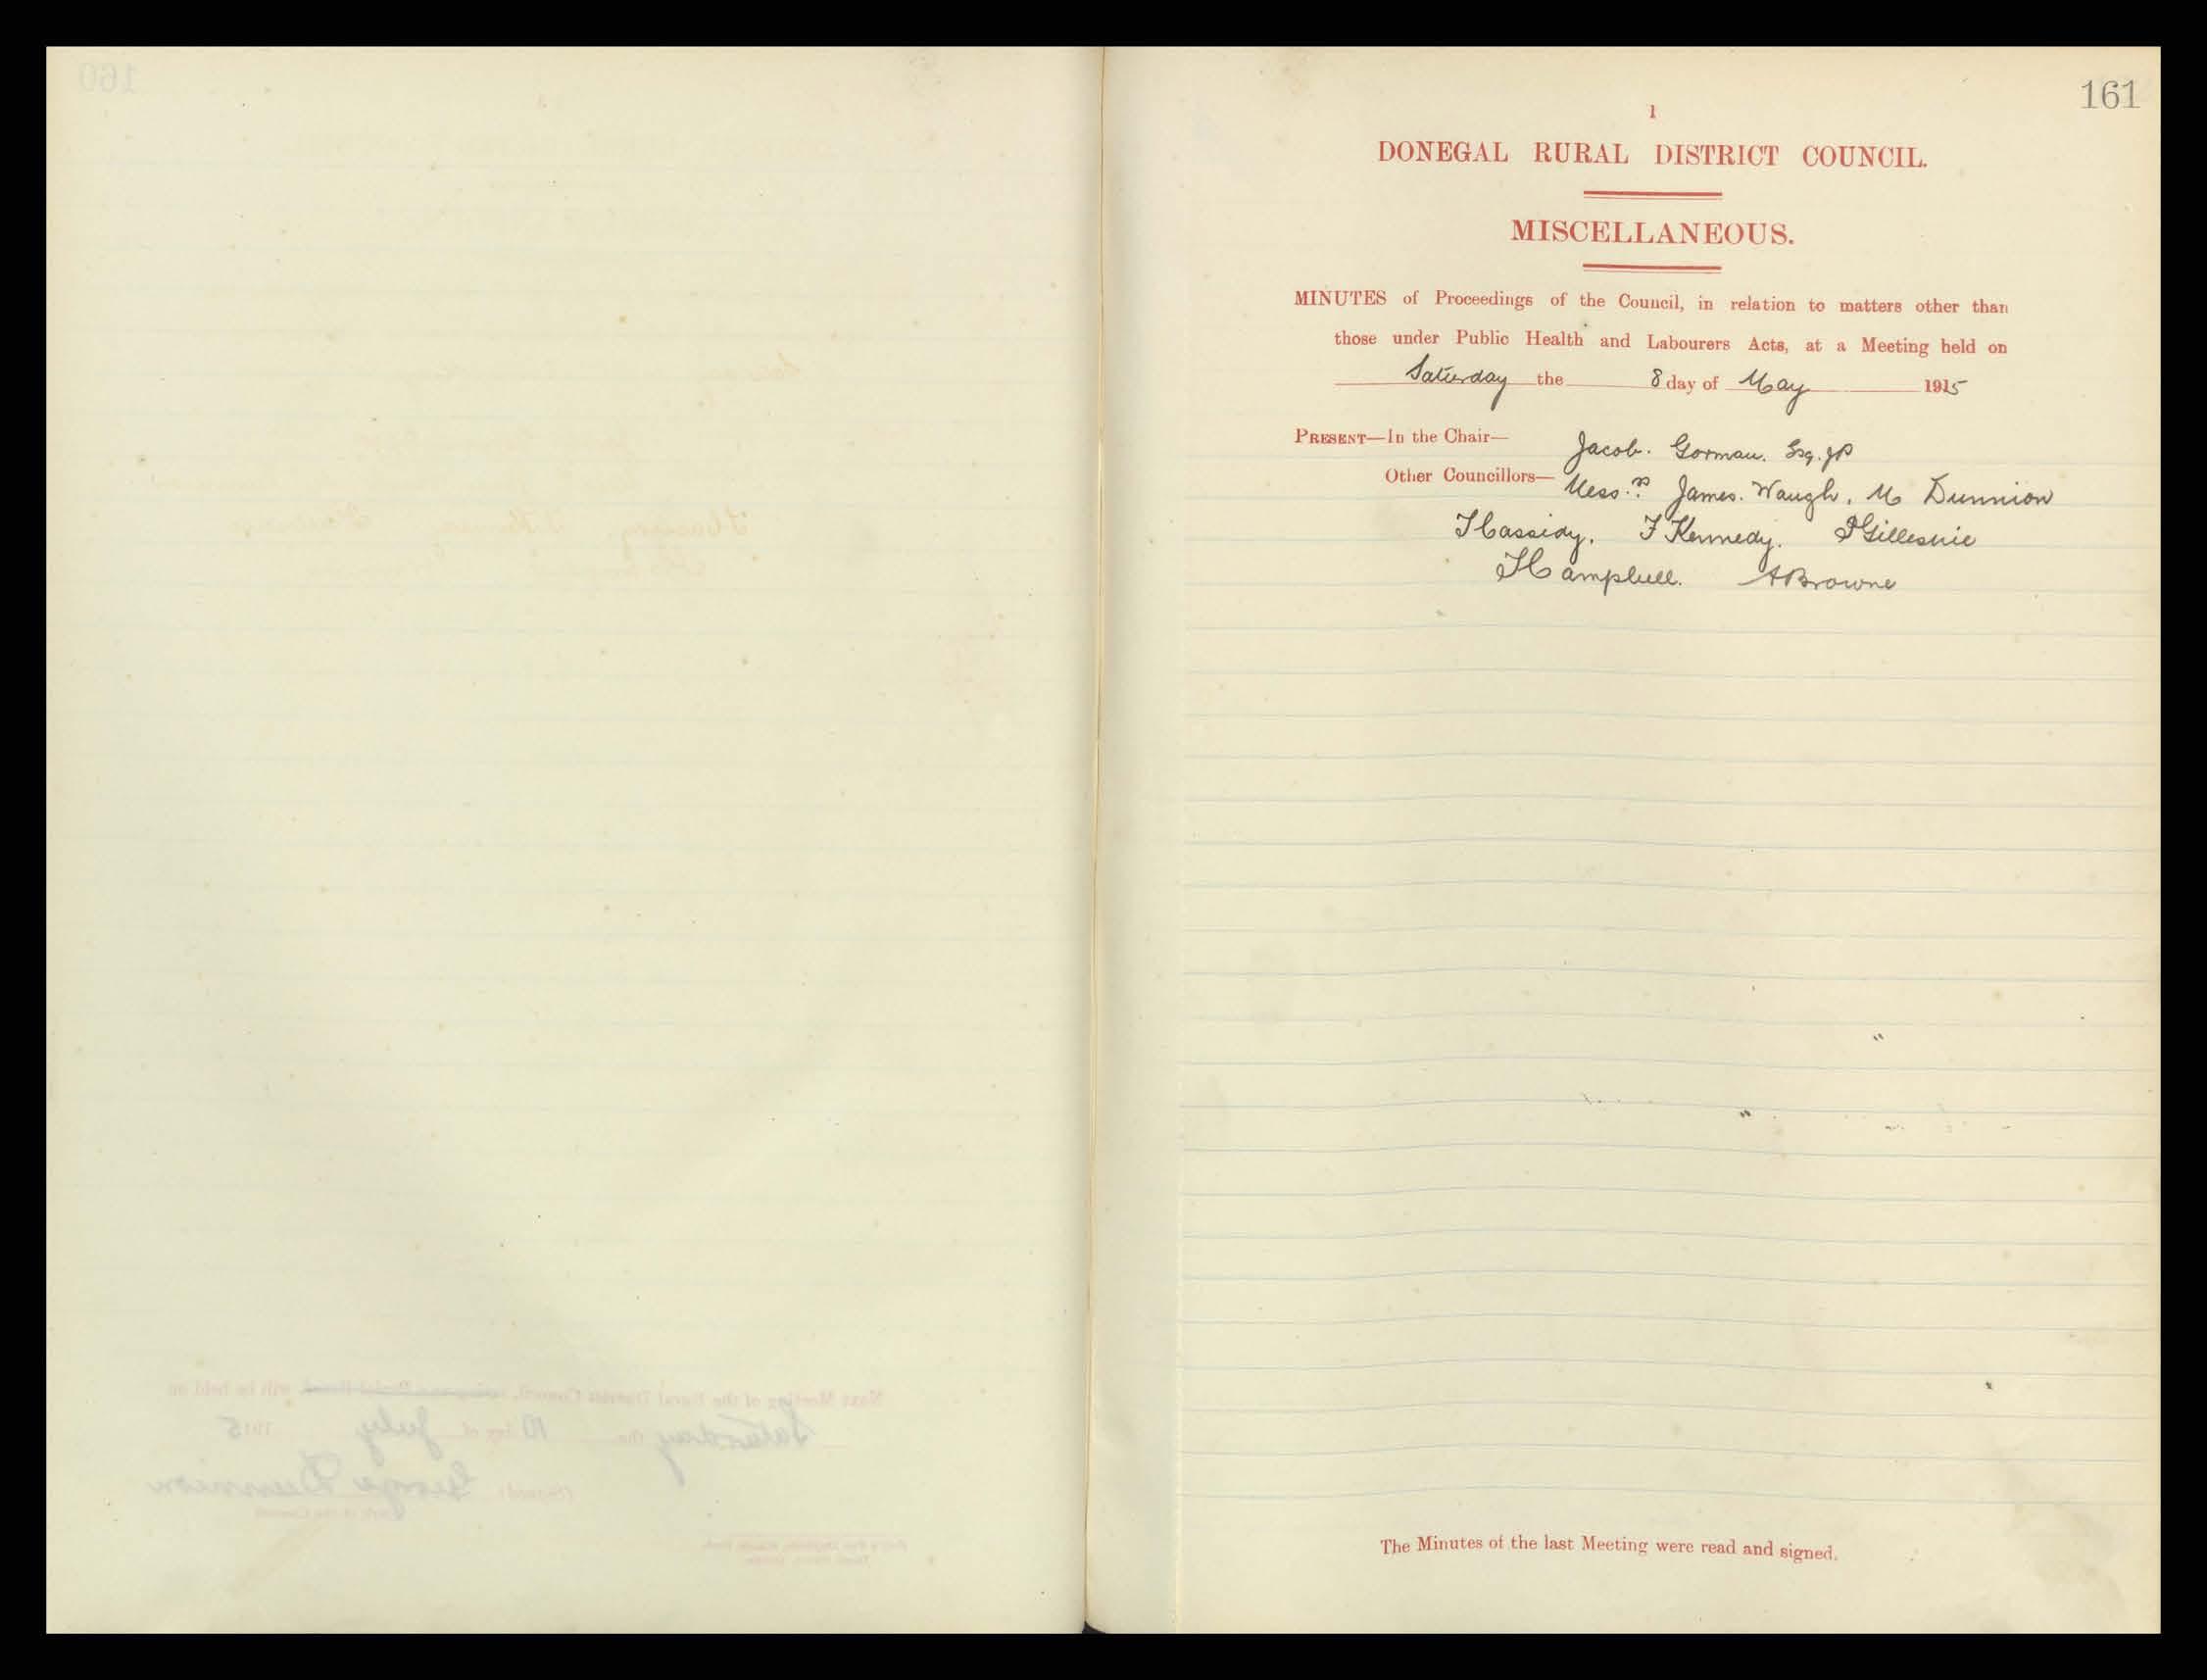 161
1
DONEGAL RURAL DISTRICT COUNCIL.
MISCELLANEOUS.
MINUTES of Proceedings of the Council, in relation to matters other than
those under Public Health and Labourers Acts, at a Meeting held on
Saturday the 8 day of May 1915
PRESENT—In the Chair— Jacob. Gorman. Esq. JP
Other Councillors— Messrs James. Waugh. M Dunnion
T Cassidy. F Kennedy. P Gillespie
H Campbell. A Browne
The Minutes of the last Meeting were read and signed.